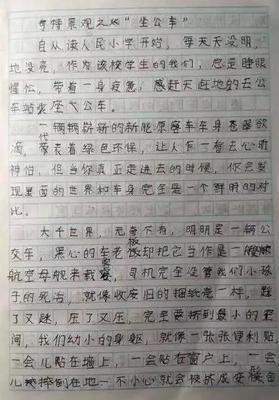 奇特景观之从“坐公车”
自从读人民小学开始，每天天没明，
地没亮，作为该校学生的我们，总是睡眼
惺忪，带着一身疲惫，感赶天赶地的去公
车站坐公车。
一辆辆崭新的新能源车车身苍翠欲
滴，代表着绿色环保，让人乍一看去心旷
神怡，但当你真正走进去的时候，你会发
现里面的世界和车身完全是一个鲜明的对
比。
大千世界，无奇不有，明明是一辆公
交车，黑心的车老板却把它当作是一
航空母舰来载客，司机完全没管我们小孩
子的死活，就像收废旧的捆纸壳一样，踩
了又踩，压了又压，完全要挤到最小的空
间，我们幼小的身躯，就像一张张便利贴，
一会儿贴在墙上，一会贴在窗户上，一会
儿摔倒在地一不小心就会被挤成